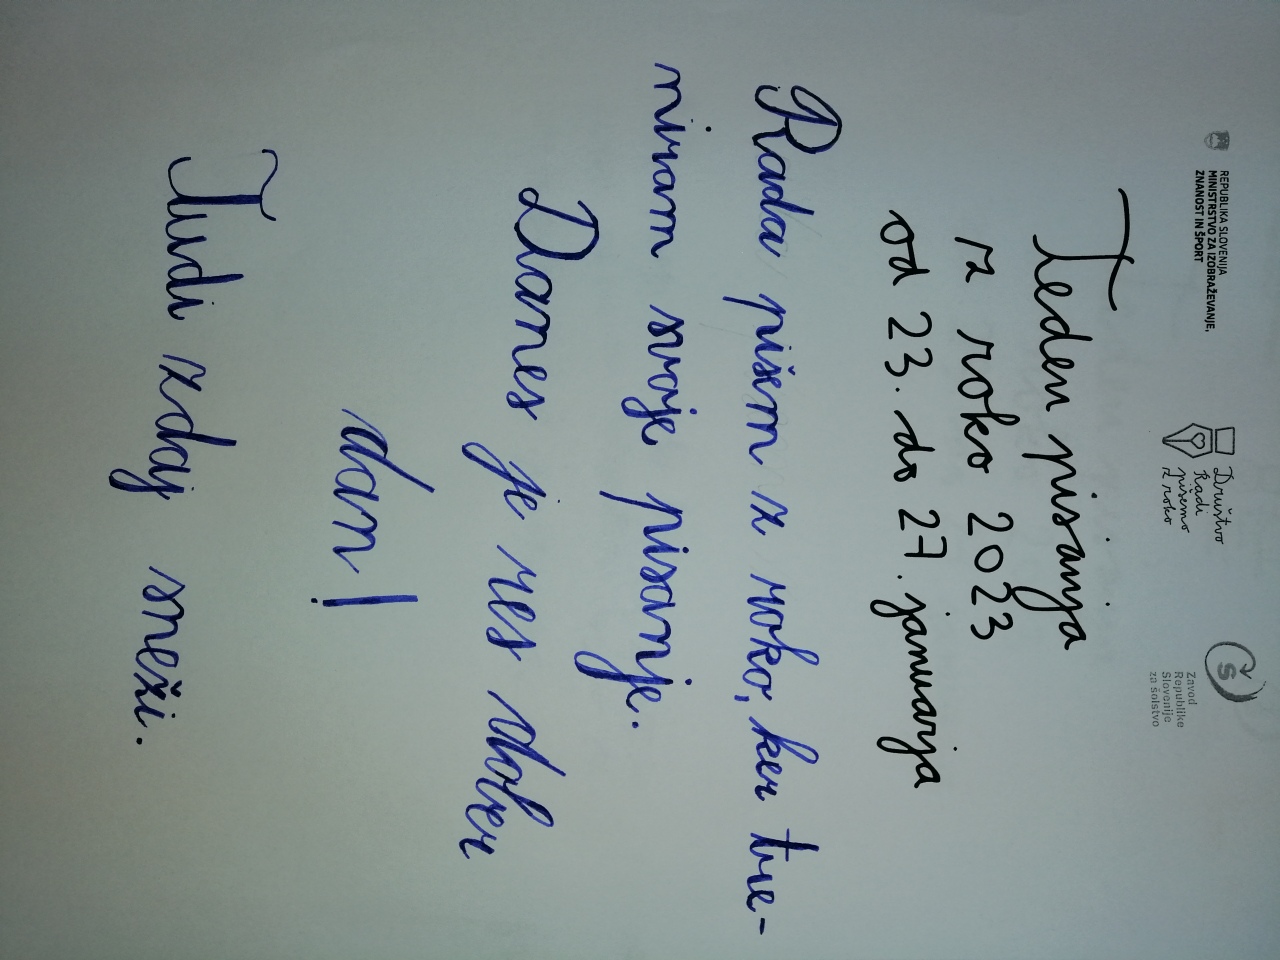 REPUBLIKA SLOVENIJA
MINISTRSTVO ZA IZOBRAŽEVANJE,
ZNANOST IN ŠPORT
Društvo
Radi
pišemo
z roko
Zavod
Republike
Slovenije
za šolstvo
Teden pisanja
z roko 2023
od 23. do 27. januarja
Rada pišem z roko, ker tre-
niram svoje pisanje.
Danes je res dober
dan!
Tudi zdaj sneži.